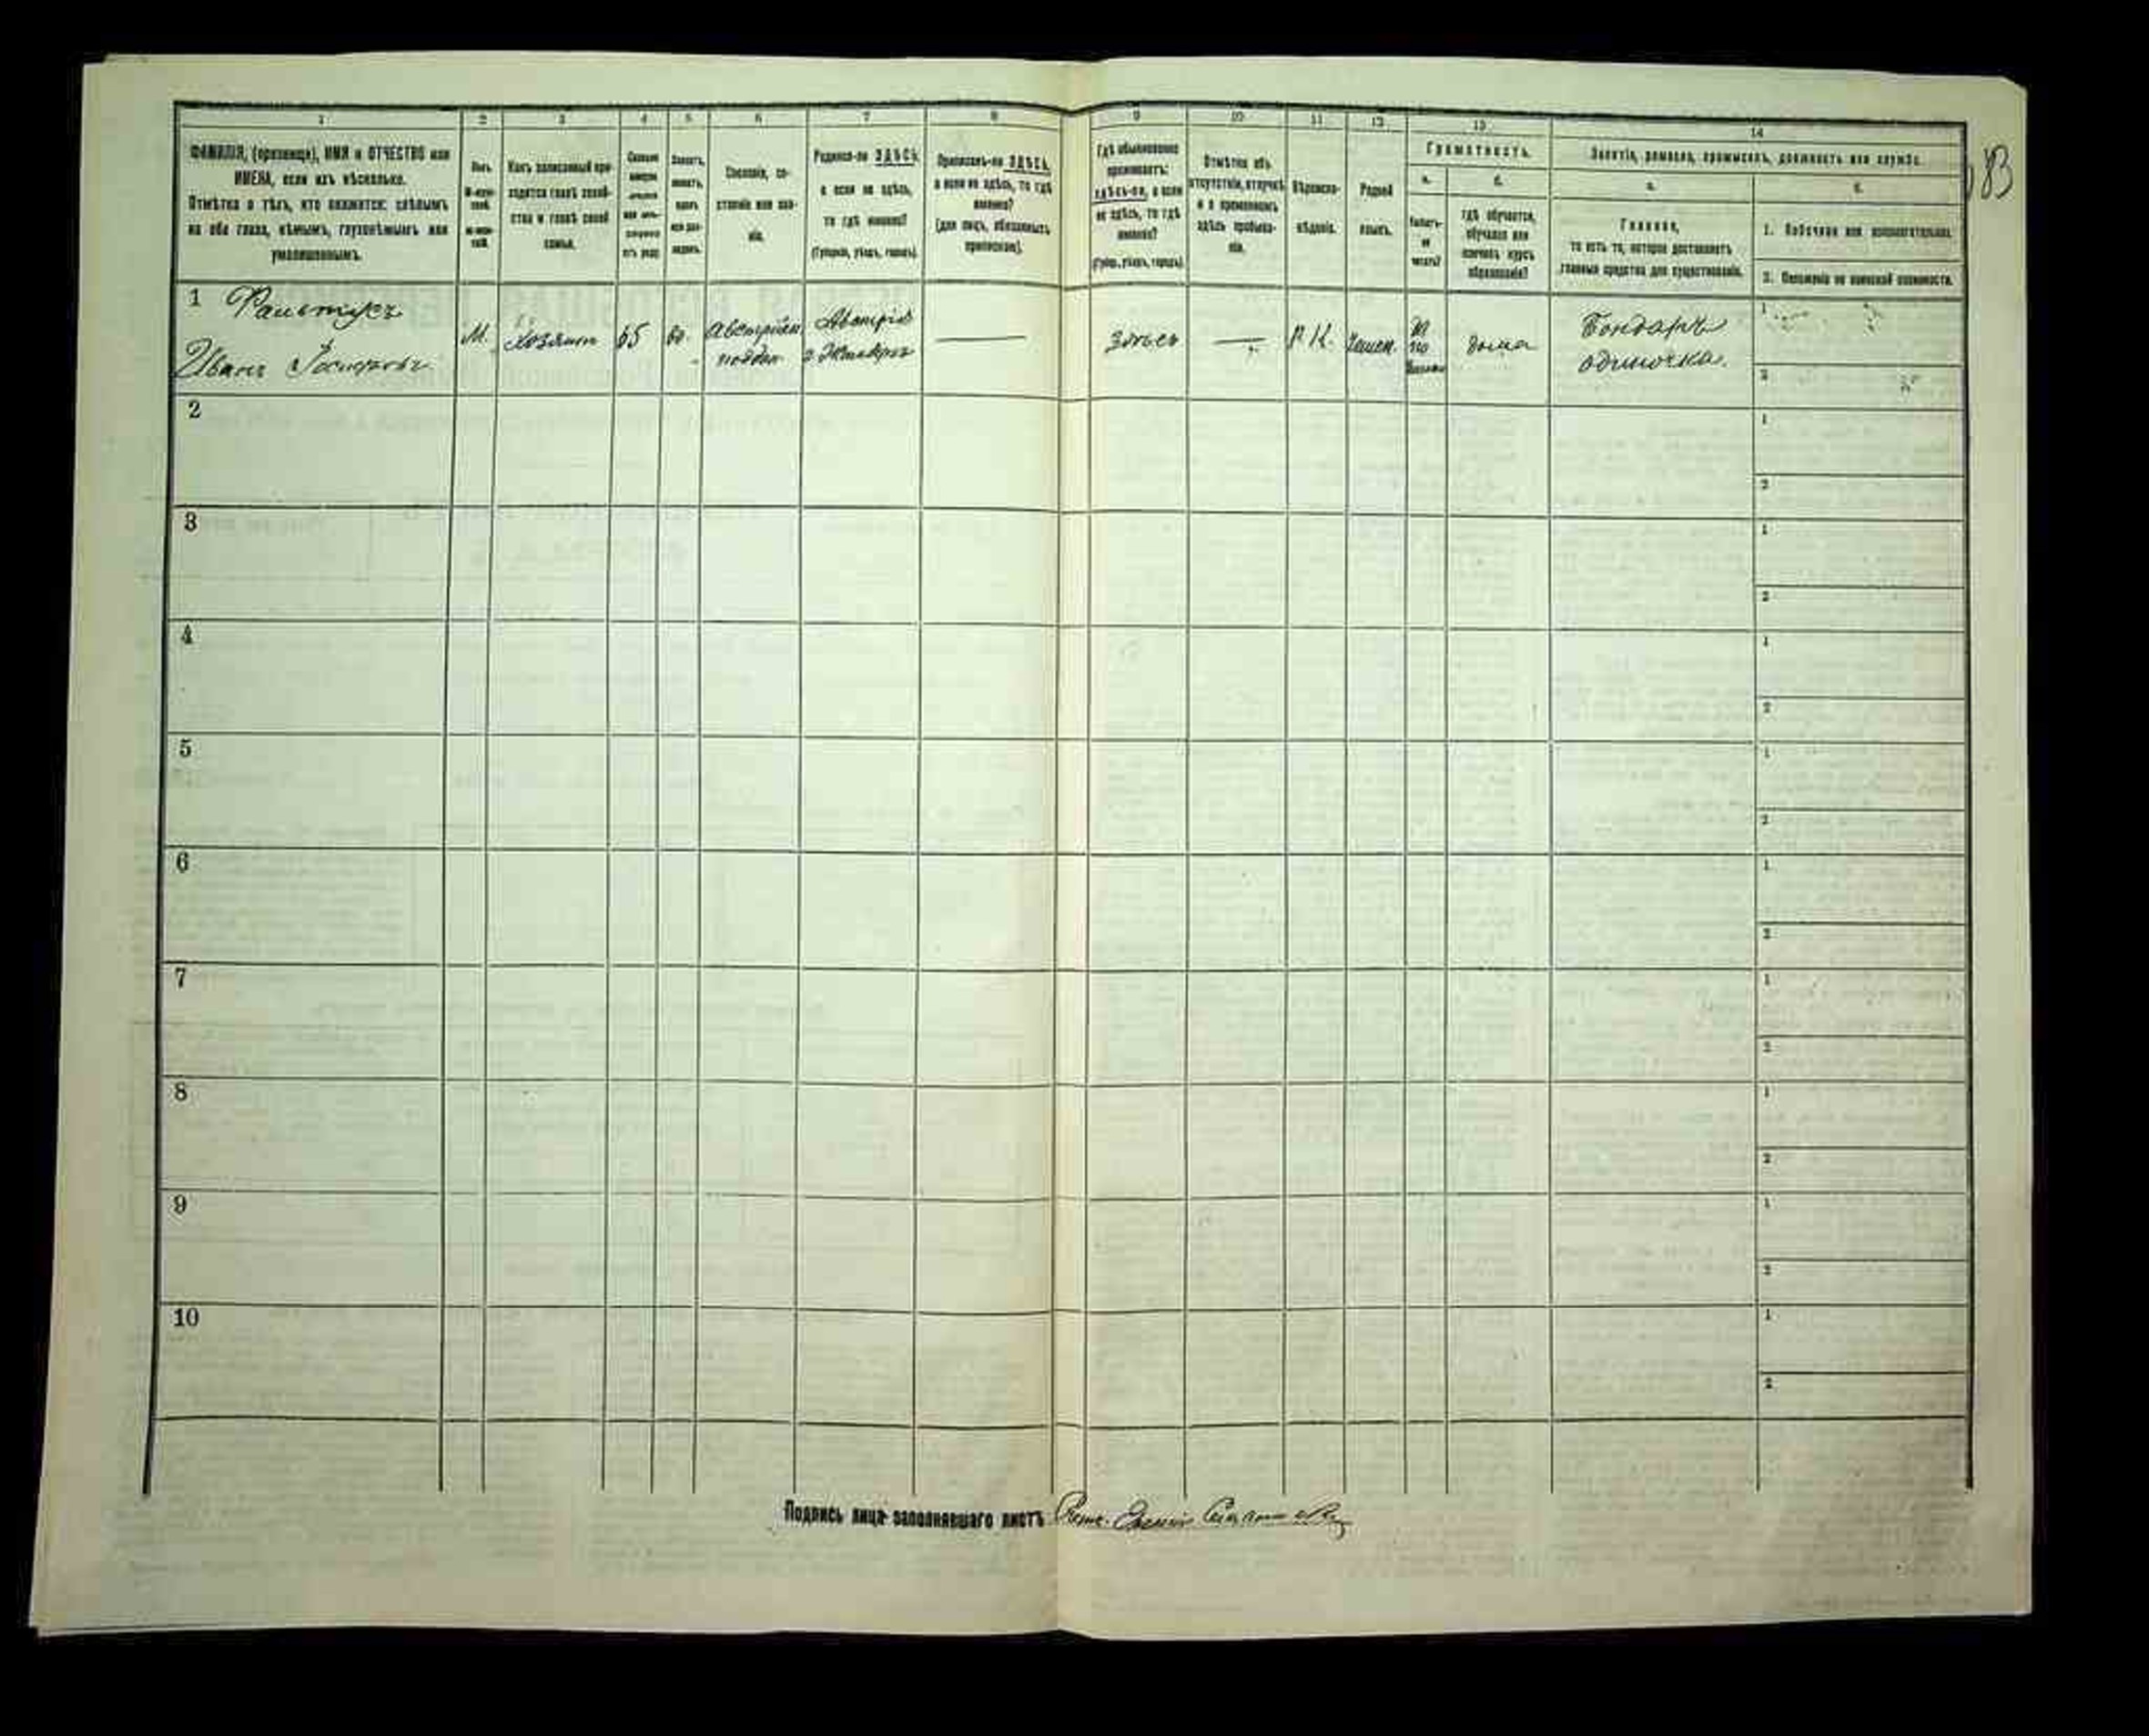 1 2 3 4 5 6 7 8 9 10 11 12 13 14
ФАМИЛІЯ, (прозвище), ИМЯ и ОТЧЕСТВО или
ИМЕНА, если ихъ нѣсколько.
Отмѣтка о тѣхъ, кто окажется: слѣпымъ
на оба глаза, нѣмымъ, глухонѣмымъ или
умалишеннымъ.
Полъ.
Какъ записанный при-
ходится главѣ хозяй-
ства и главѣ своей
семьи.
Сословіе, со-
стояніе или зва-
ніе.
Родился-ли ЗДѢСЬ,
а если не здѣсь,
то гдѣ именно?
(Губернія, уѣздъ, городъ).
Приписанъ-ли ЗДѢСЬ,
а если не здѣсь, то гдѣ
именно?
(для лицъ, обязанныхъ
припискою).
Гдѣ обыкновенно
проживаетъ:
здѣсь-ли, а если
не здѣсь, то гдѣ
именно?
(Губер., уѣздъ, городъ).
Отмѣтка объ
отсутствіи, отлучкѣ
и о временномъ
здѣсь пребыва-
ніи.
Вѣроиспо-
вѣданіе.
Родной
языкъ.
Грамотность.
а.
Умѣетъ-
ли
читать?
б.
гдѣ обучается,
обучался или
кончилъ курсъ
образованія?
Занятіе, ремесло, промыселъ, должность или служба.
а.
Главное,
то есть то, которое доставляетъ
главныя средства для существованія.
б.
1. Побочное или вспомогательное.
2. Положеніе по воинской повинности.
183
1
Иванъ Іосифовъ
М
хозяинъ
65
вд.
Австрійск.
поддан.
Австрія
здѣсь
Р. К.
Чешск.
да
по
дома
Бондарь
одиночка.
1
2
2
1
2
3
1
2
4
1
2
5
1
2
6
1
2
7
1
2
8
1
2
9
1
2
10
1
2
Подпись лица заполнявшаго листъ